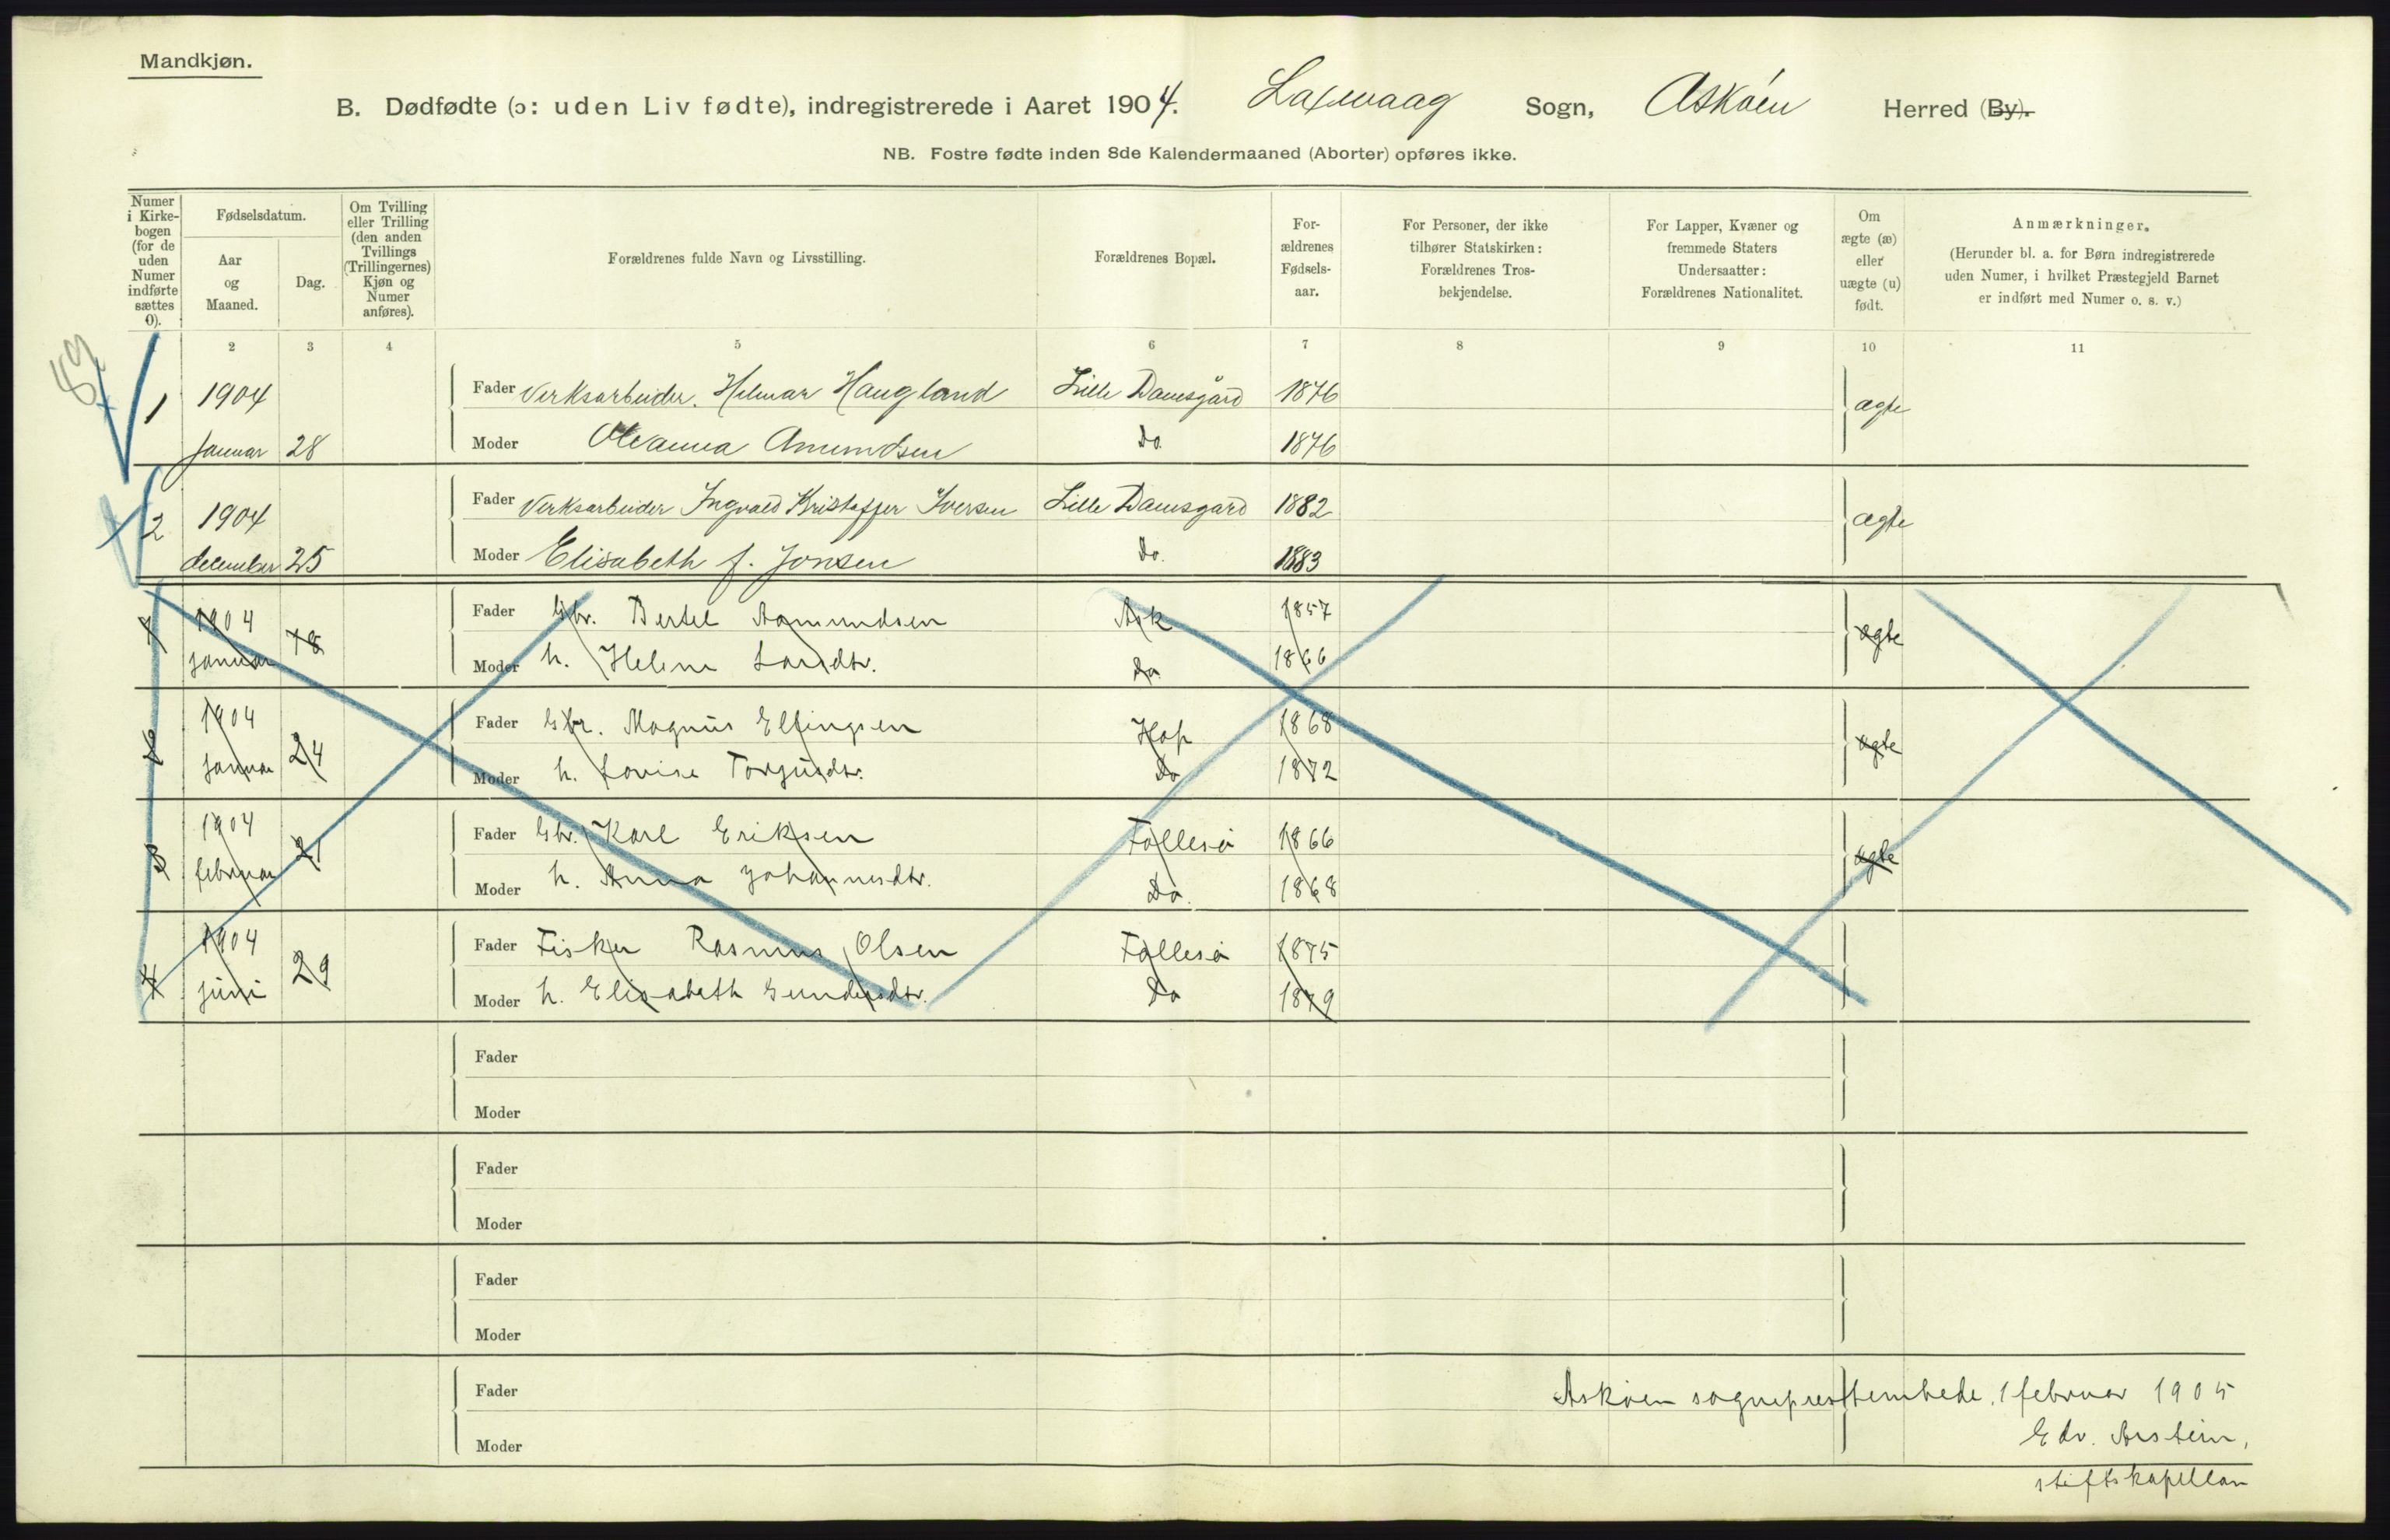 Mandkjøn.
B. Dødfødte (ɔ: uden Liv fødte), indregistrerede i Aaret 1904. Laxevaag Sogn, Askøen Herred (By).
NB. Fostre fødte inden 8de Kalendermaaned (Aborter) opføres ikke.
Numer i Kirkebogen (for de uden Numer indførte sættes 0).
Fødselsdatum.
Aar og Maaned.
Dag.
Om Tvilling eller Trilling (den anden Tvillings (Trillingernes) Kjøn og Numer anføres).
Forældrenes fulde Navn og Livsstilling.
Forældrenes Bopæl.
Forældrenes Fødselsaar.
For Personer, der ikke tilhører Statskirken: Forældrenes Trosbekjendelse.
For Lapper, Kvæner og fremmede Staters Undersaatter: Forældrenes Nationalitet.
Om ægte (æ) eller uægte (u) født.
Anmærkninger.
(Herunder bl. a. for Børn indregistrerede uden Numer, i hvilket Præstegjeld Barnet er indført med Numer o. s. v.)
2 3 4 5 6 7 8 9 10 11
89
1 1904 Fader Verksarbeider. Helmar Haugland Lille Damsgård 1876 ægte
januar 28 Moder Oleanna Amundsen do. 1876
2 1904 Fader Verksarbeider Ingvald Kristoffer Iversen Lille Damsgård 1882 ægte
december 25 Moder Elisabeth f. Jonsen do. 1883
1 1904 18 Fader Gbr. Bertel Aamundsen Ask 1857 ægte
januar Moder h. Helene Larsdtr. do. 1866
2 1904 24 Fader Gbr. Magnus Ellingsen Hop 1868 ægte
januar Moder h. Lovise Torgusdtr. Do 1872
3 1904 21 Fader Gbr. Karl Eriksen Follesø 1866 ægte
februar Moder h. Anna Johannesdtr. Do. 1868
4 1904 29 Fader Fisker Rasmus Olsen Follesø 1875
juni Moder h. Elisabeth Gundersdtr. Do 1879
Fader
Moder
Fader
Moder
Fader
Moder
Fader Askøen sogneprestembede, 1 februar 1905
Moder Edv. Arstein,
stiftskapellan